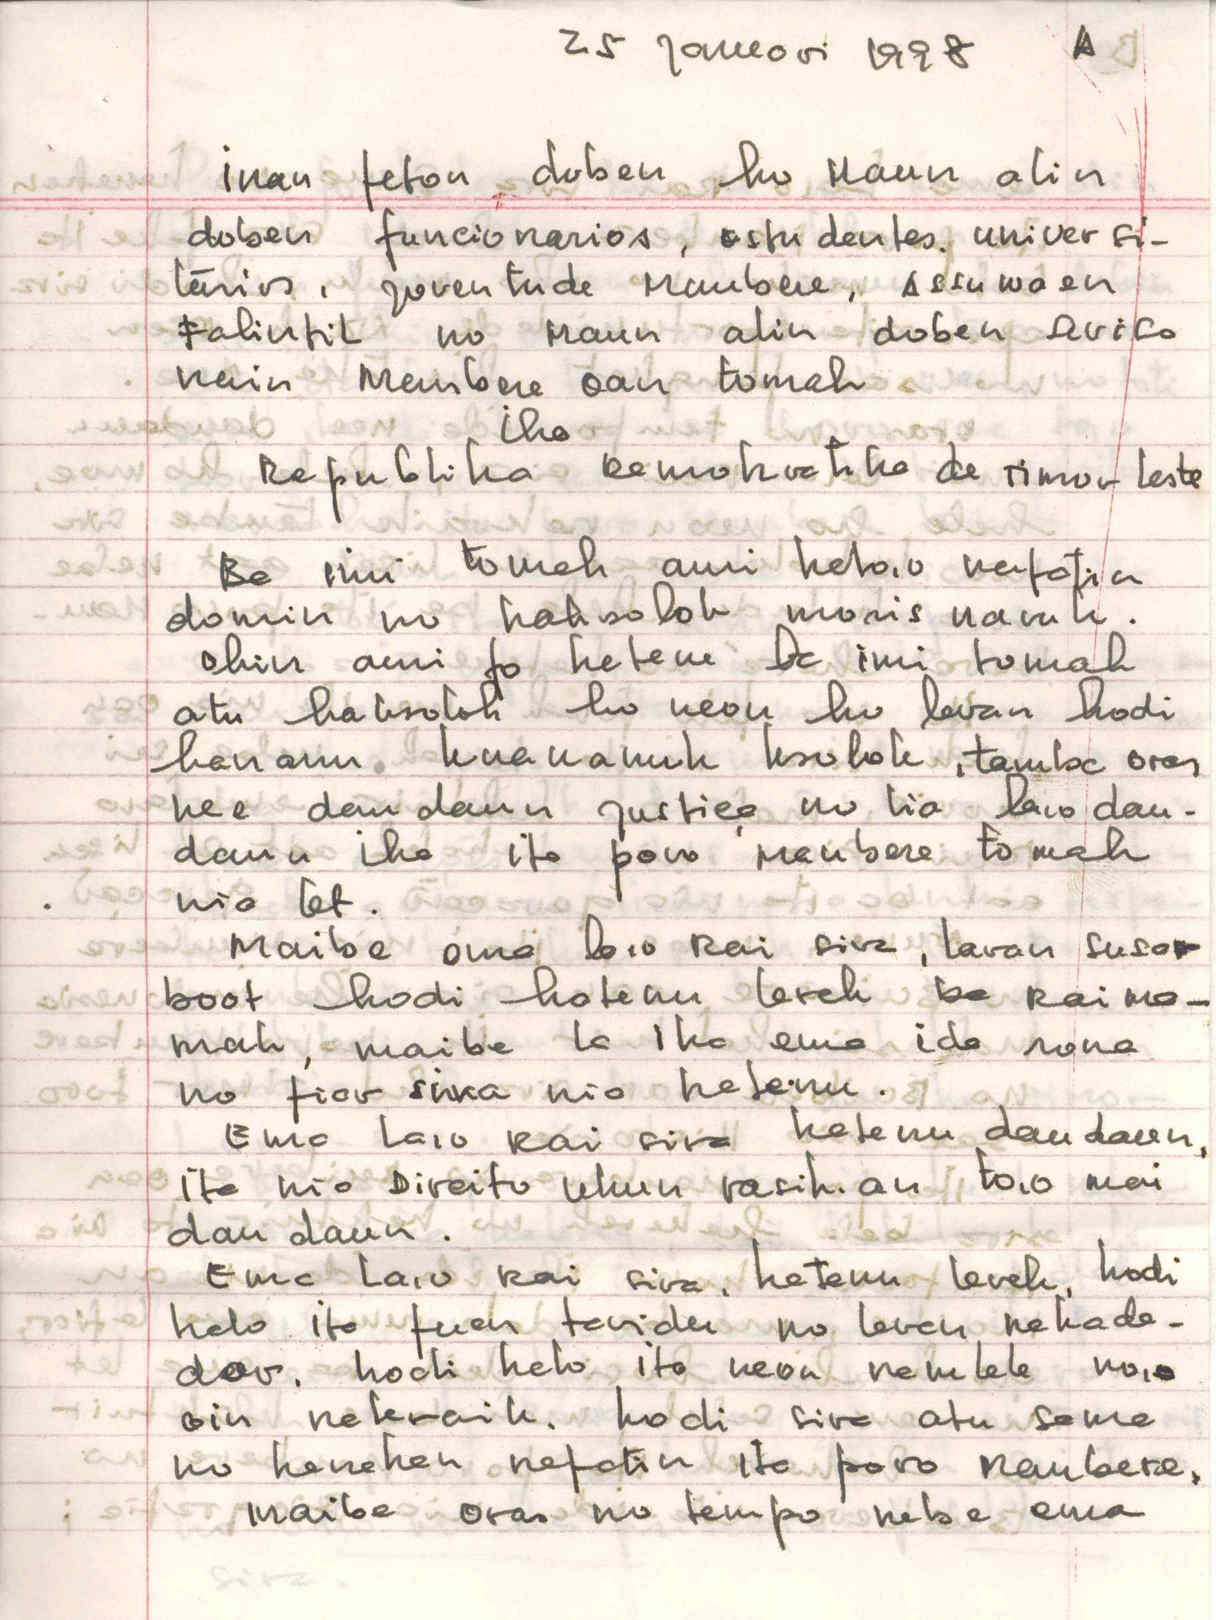 25 Janeori 1998 A
Inan feton doben ho Maun alin
doben funcionarios, estudentes. universi-
tários, joventude Maubere, Assuwaen
Falintil no Maun alin doben serviso
nain Maubere oan tomak
iha
Republika Demokratika de Timor Leste
Ba imi tomak ami hato,o nafatin
domin no haksolok moris naruk.
Ohin ami fo hatene ba imi tomak
atu haksolok ho neon ho laran hodi
hananu knananuk ksolok, tamba oras
nee daudaun justiça no lia la,o dau-
daun iha ita povo Maubere tomak
nia let.
Maibe ema la,o rai sira, laran susar
boot hodi hatenu lerek ba rai ma-
mak, maibe la iha ema ida rona
no fiar sira nia hatenu.
Ema la,o rai sira hatenu daudaun,
ita nia Direito ukun rasik.an to,o mai
daudaun.
Ema la,o rai sira, hatenu lerek, hodi
halo ita fuan taridu no laran nakade-
dar. hodi halo ita neon namlele no,o
oin nakraik. hodi sira atu sama
no hanehan nafatin ita povo Maubere.
Maibe oras no tempo nebe ema